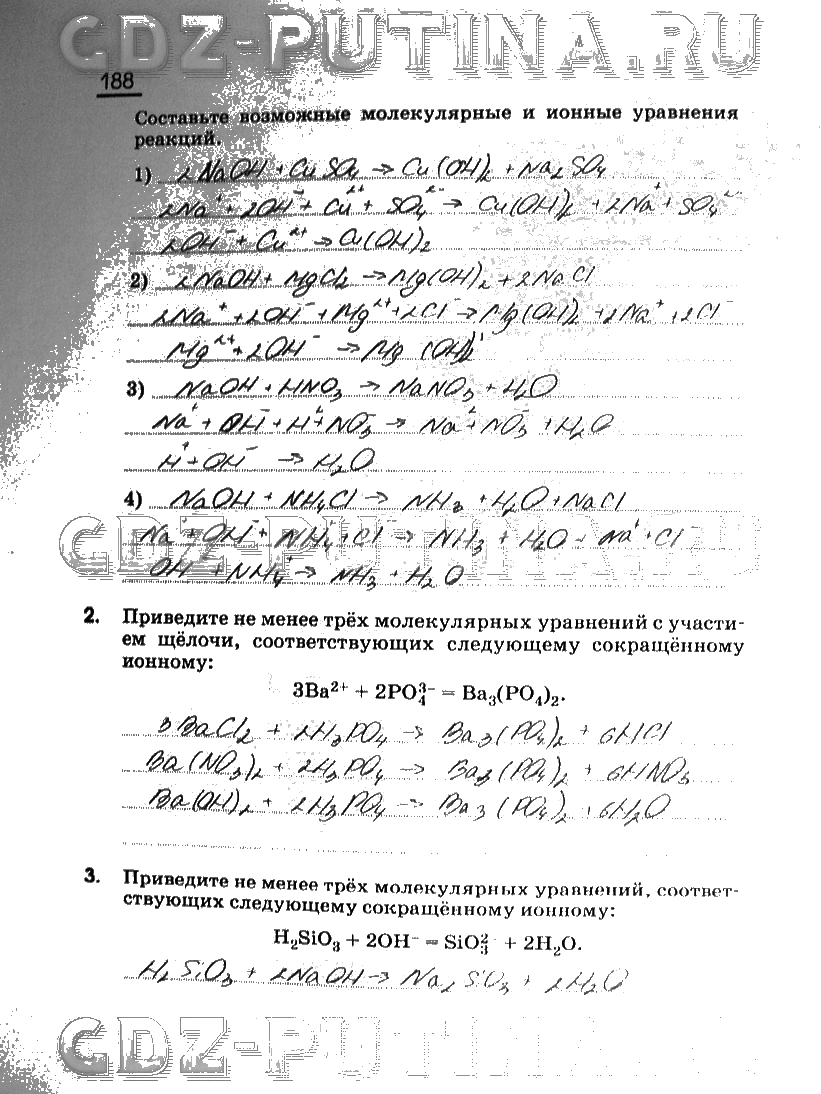 GDZ-PUTINA.RU
188
Составьте возможные молекулярные и ионные уравнения
реакций.
1) 2NaOH + CuSO₄ → Cu(OH)₂ + Na₂SO₄
2Na⁺ + 2OH⁻ + Cu²⁺ + SO₄²⁻ → Cu(OH)₂ + 2Na⁺ + SO₄²⁻
2OH⁻ + Cu²⁺ → Cu(OH)₂
2) 2NaOH + MgCl₂ → Mg(OH)₂ + 2NaCl
2Na⁺ + 2OH⁻ + Mg²⁺ + 2Cl⁻ → Mg(OH)₂ + 2Na⁺ + 2Cl⁻
Mg²⁺ + 2OH⁻ → Mg(OH)₂
3) NaOH + HNO₃ → NaNO₃ + H₂O
Na⁺ + OH⁻ + H⁺ + NO₃⁻ → Na⁺ + NO₃⁻ + H₂O
H⁺ + OH⁻ → H₂O
4) NaOH + NH₄Cl → NH₃ + H₂O + NaCl
GDZ-PUTINA.RU
Na⁺ + OH⁻ + NH₄⁺ + Cl⁻ → NH₃ + H₂O + Na⁺ + Cl⁻
OH⁻ + NH₄⁺ → NH₃ + H₂O
2. Приведите не менее трёх молекулярных уравнений с участи-
ем щёлочи, соответствующих следующему сокращённому
ионному:
3Ba²⁺ + 2PO₄³⁻ = Ba₃(PO₄)₂.
3BaCl₂ + 2H₃PO₄ → Ba₃(PO₄)₂ + 6HCl
Ba(NO₃)₂ + 2H₃PO₄ → Ba₃(PO₄)₂ + 6HNO₃
Ba(OH)₂ + 2H₃PO₄ → Ba₃(PO₄)₂ + 6H₂O
3. Приведите не менее трёх молекулярных уравнений, соответ-
ствующих следующему сокращённому ионному:
H₂SiO₃ + 2OH⁻ = SiO₃²⁻ + 2H₂O.
H₂SiO₃ + 2NaOH → Na₂SiO₃ + 2H₂O
GDZ-PUTINA